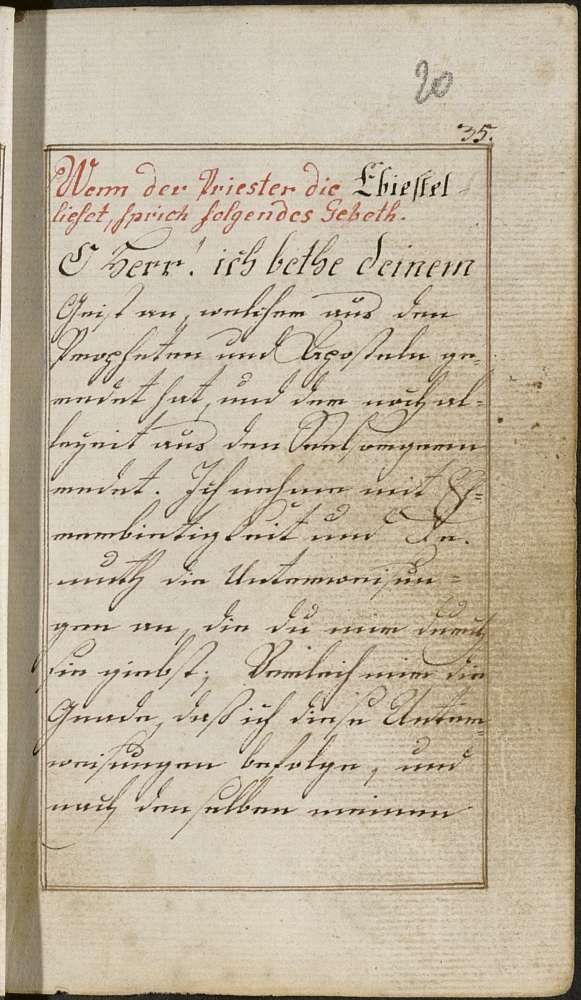 20
35.
Wenn der Priester die Ebiestel
lieset, sprich folgendes Gebeth.
O Herr! ich bethe deinem
Geist an, welcher aus den
Propheten und Aposteln ge-
redet hat, und der noch al-
lezeit aus den Seelsorgern
redet. Ich nehme mit Eh-
rerbietigkeit und De-
muth die Unterweisun-
gen an, die du mir durch
sie giebst; Verleih mir die
Gnade, daß ich diese Unter-
weisungen befolge, und
nach denselben meinen